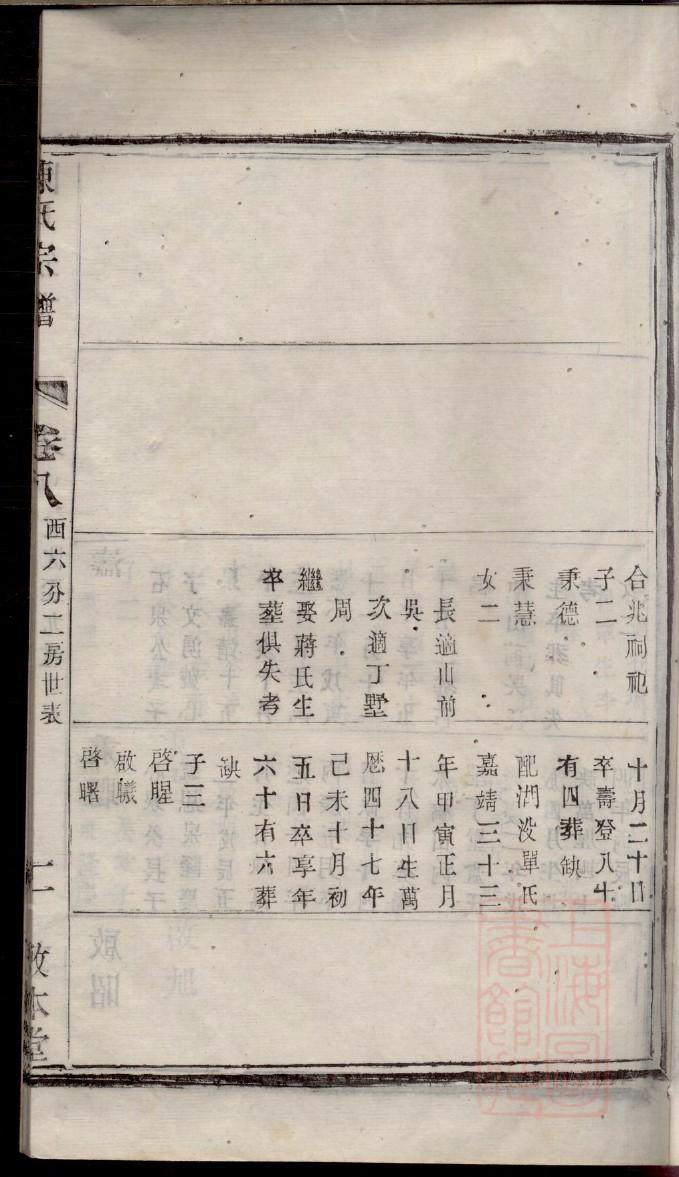 合兆祠祀
子二
秉德
秉慧
女二
長適山前
吳
次適丁墅
周
繼娶蔣氏生
卒葬俱失考
十月二十日
卒壽登八十
有四葬缺
配湖㳇單氏
嘉靖三十三
年甲寅正月
十八日生萬
厯四十七年
己未十月初
五日卒享年
六十有六葬
缺
子三
啓腥
啟曦
啓曙
陳氏宗譜
卷八
西六分二房世表
二
敦本堂
上海圖書館藏